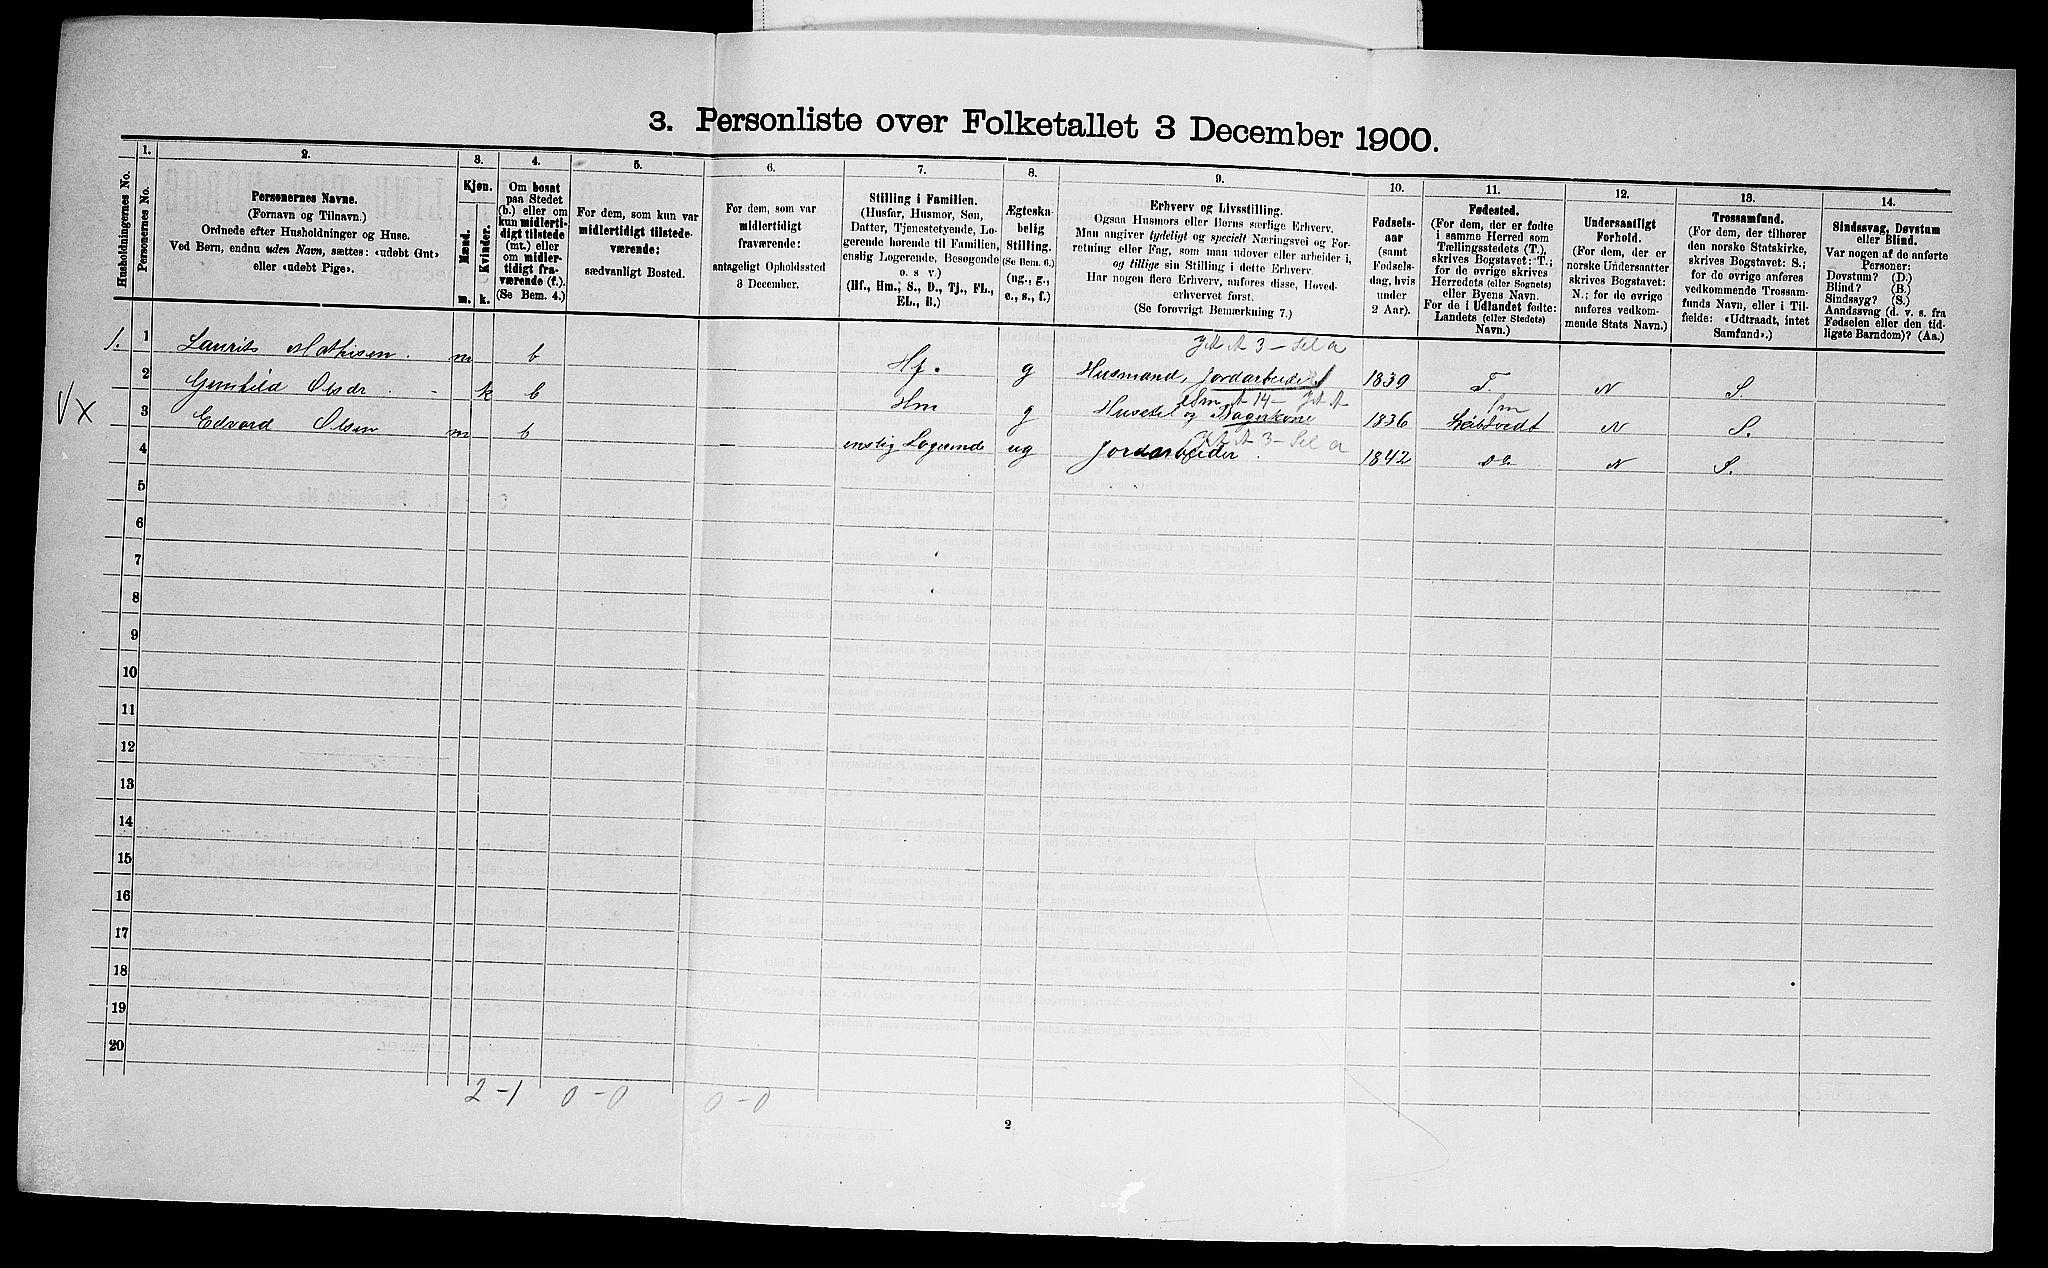 3. Personliste over Folketallet 3 December 1900.
Husholdningernes No.
1.
Personernes No.
2.
Personernes Navne.
(Fornavn og Tilnavn.)
Ordnede efter Husholdninger og Huse.
Ved Børn, endnu uden Navn, sættes: «udøbt Gut»
eller «udøbt Pige».
3.
Kjøn.
Mænd.
Kvinder.
m. k.
4.
Om bosat
paa Stedet
(b.) eller om
kun midlerti-
digt tilstede
(mt.) eller
om midler-
tidigt fra-
værende (f.).
(Se Bem. 4.)
5.
For dem, som kun var
midlertidigt tilstede-
værende:
sædvanligt Bosted.
6.
For dem, som var
midlertidigt
fraværende:
antageligt Opholdssted
3 December.
7.
Stilling i Familien.
(Husfar, Husmor, Søn,
Datter, Tjenestetyende, Lo-
gerende hørende til Familien,
enslig Logerende, Besøgende
o. s v.)
(Hf., Hm., S., D., Tj., FL.,
EL., B.)
8.
Ægteska-
belig
Stilling.
(Se Bem. 6.)
(ug., g.,
e., s., f.)
9.
Erhverv og Livsstilling.
Ogsaa Husmors eller Børns særlige Erhverv.
Man angiver tydeligt og specielt Næringsvei og For-
retning eller Fag, som man udover eller arbeider i,
og tillige sin Stilling i dette Erhverv.
Har nogen flere Erhverv, anføres disse, Hoved-
erhvervet først.
(Se forøvrigt Bemærkning 7.)
10.
Fødsels-
aar
(samt
Fødsels-
dag, hvis
under
2 Aar).
11.
Fødested.
(For dem, der er fødte
i samme Herred som
Tællingsstedets (T.),
skrives Bogstavet: T.;
for de øvrige skrives
Herredets (eller Sognets)
eller Byens Navn.
For de i Udlandet fødte:
Landets (eller Stedets)
Navn.)
12.
Undersaatligt
Forhold.
(For dem, der er
norske Undersaatter
skrives Bogstavet:
N.; for de øvrige
anføres vedkom-
mende Stats Navn.)
13.
Trossamfund.
(For dem, der tilhører
den norske Statskirke,
skrives Bogstavet: S.;
for de øvrige anføres
vedkommende Trossam-
funds Navn, eller i Til-
fælde: «Udtraadt, intet
Samfund».)
14.
Sindssvag, Døvstum
eller Blind.
Var nogen af de anførte
Personer:
Døvstum? (D.)
Blind? (B.)
Sindssyg? (S.)
Aandssvag (d. v. s. fra
Fødselen eller den tid-
ligste Barndom)? (Aa.)
1. 1 Laurits Mathisen. m b Hf. g Husmand, Jordarbeider 1839 T. N S.
2 Gunhild Olsdr k b Hm g Husstel og Bagerkone 1836 N S.
3 Edvard Olsen m b enslig Logerende ug Jordarbeider. 1842 do N S.
4
5
6
7
8
9
10
11
12
13
14
15
16
17
18
19
20
2-1 0-0 0-0
2